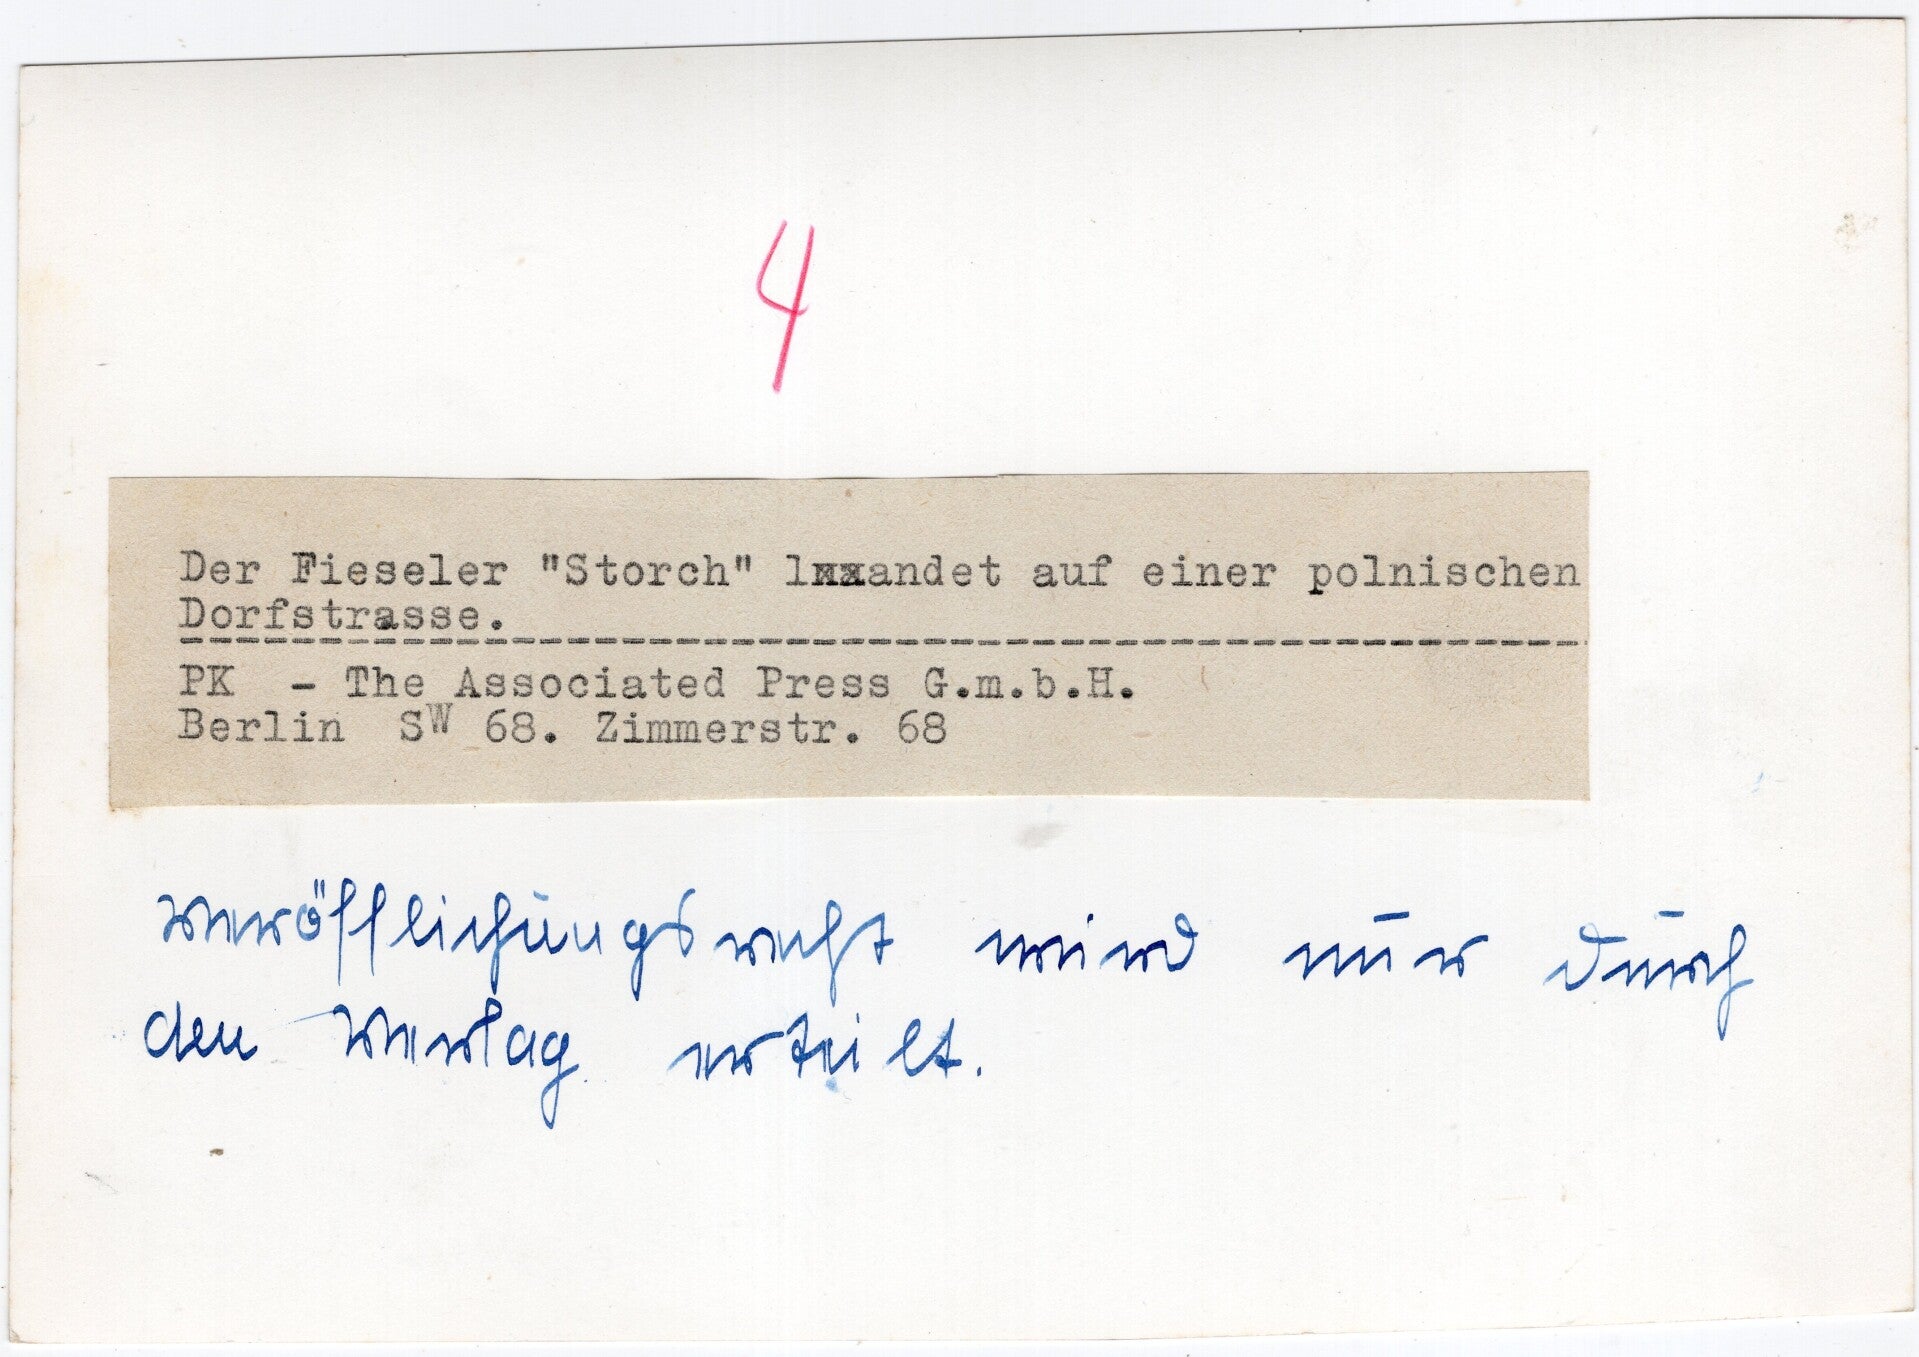 4
Der Fieseler "Storch" lxxandet auf einer polnischen
Dorfstrasse.
PK - The Associated Press G.m.b.H.
Berlin SW 68. Zimmerstr. 68
Veröfflichungsrecht wird nur durch
den Verlag erteilt.